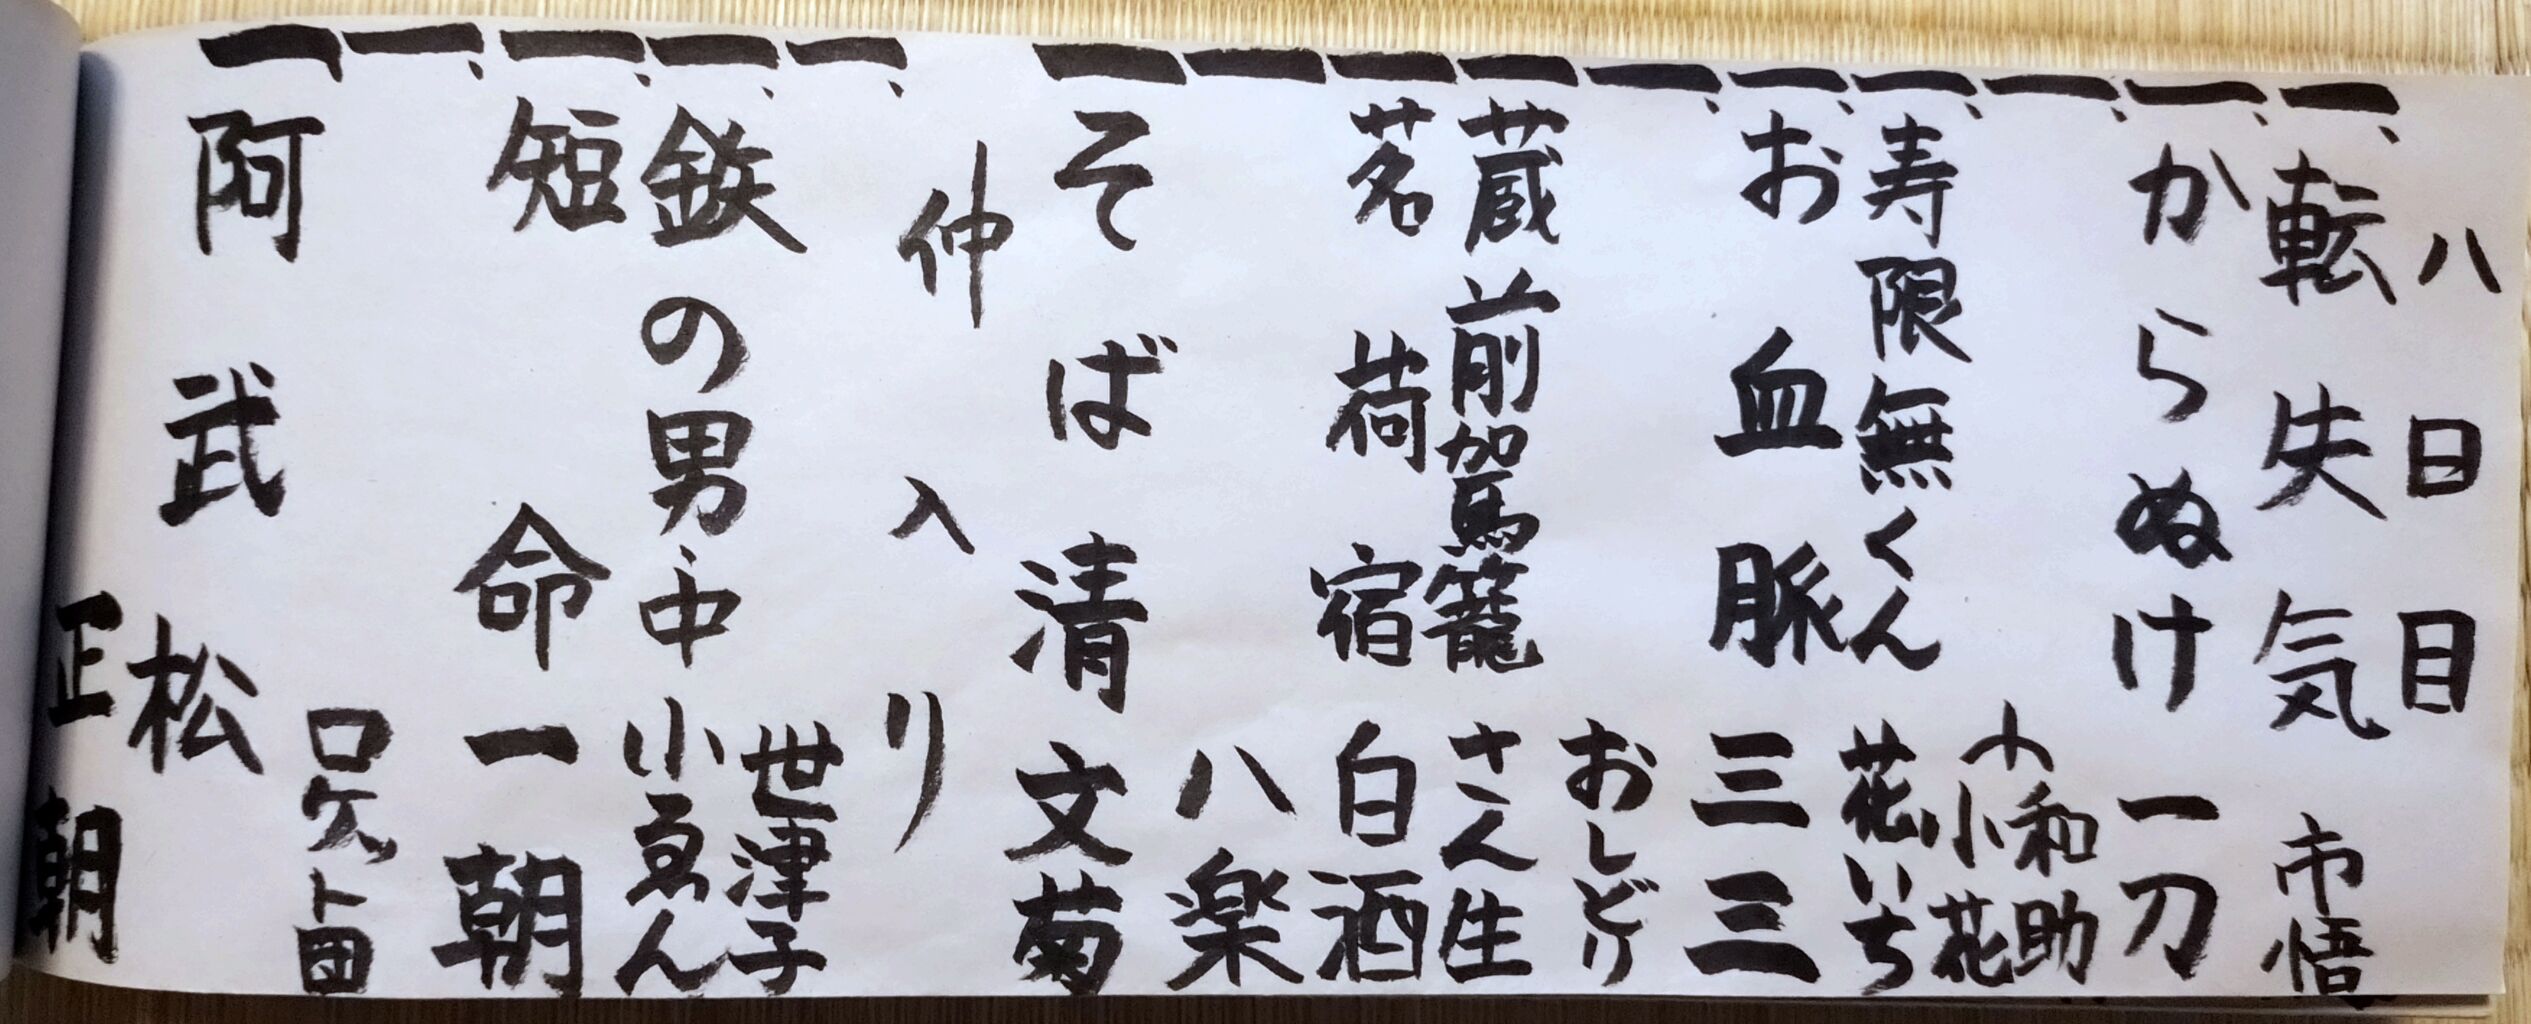 八日目
一、転失気 市悟
一、からぬけ 一刀
一、小和助 小花
一、寿限無くん 花いち
一、お血脈 三三
一、おしどり
一、蔵前駕籠 さん生
一、茗荷宿 白酒
一、八楽
一、そば清 文菊
仲入り
一、世津子
一、鉄の男・中 小ゑん
一、短命 一朝
一、ロケット団
一、阿武松 正朝